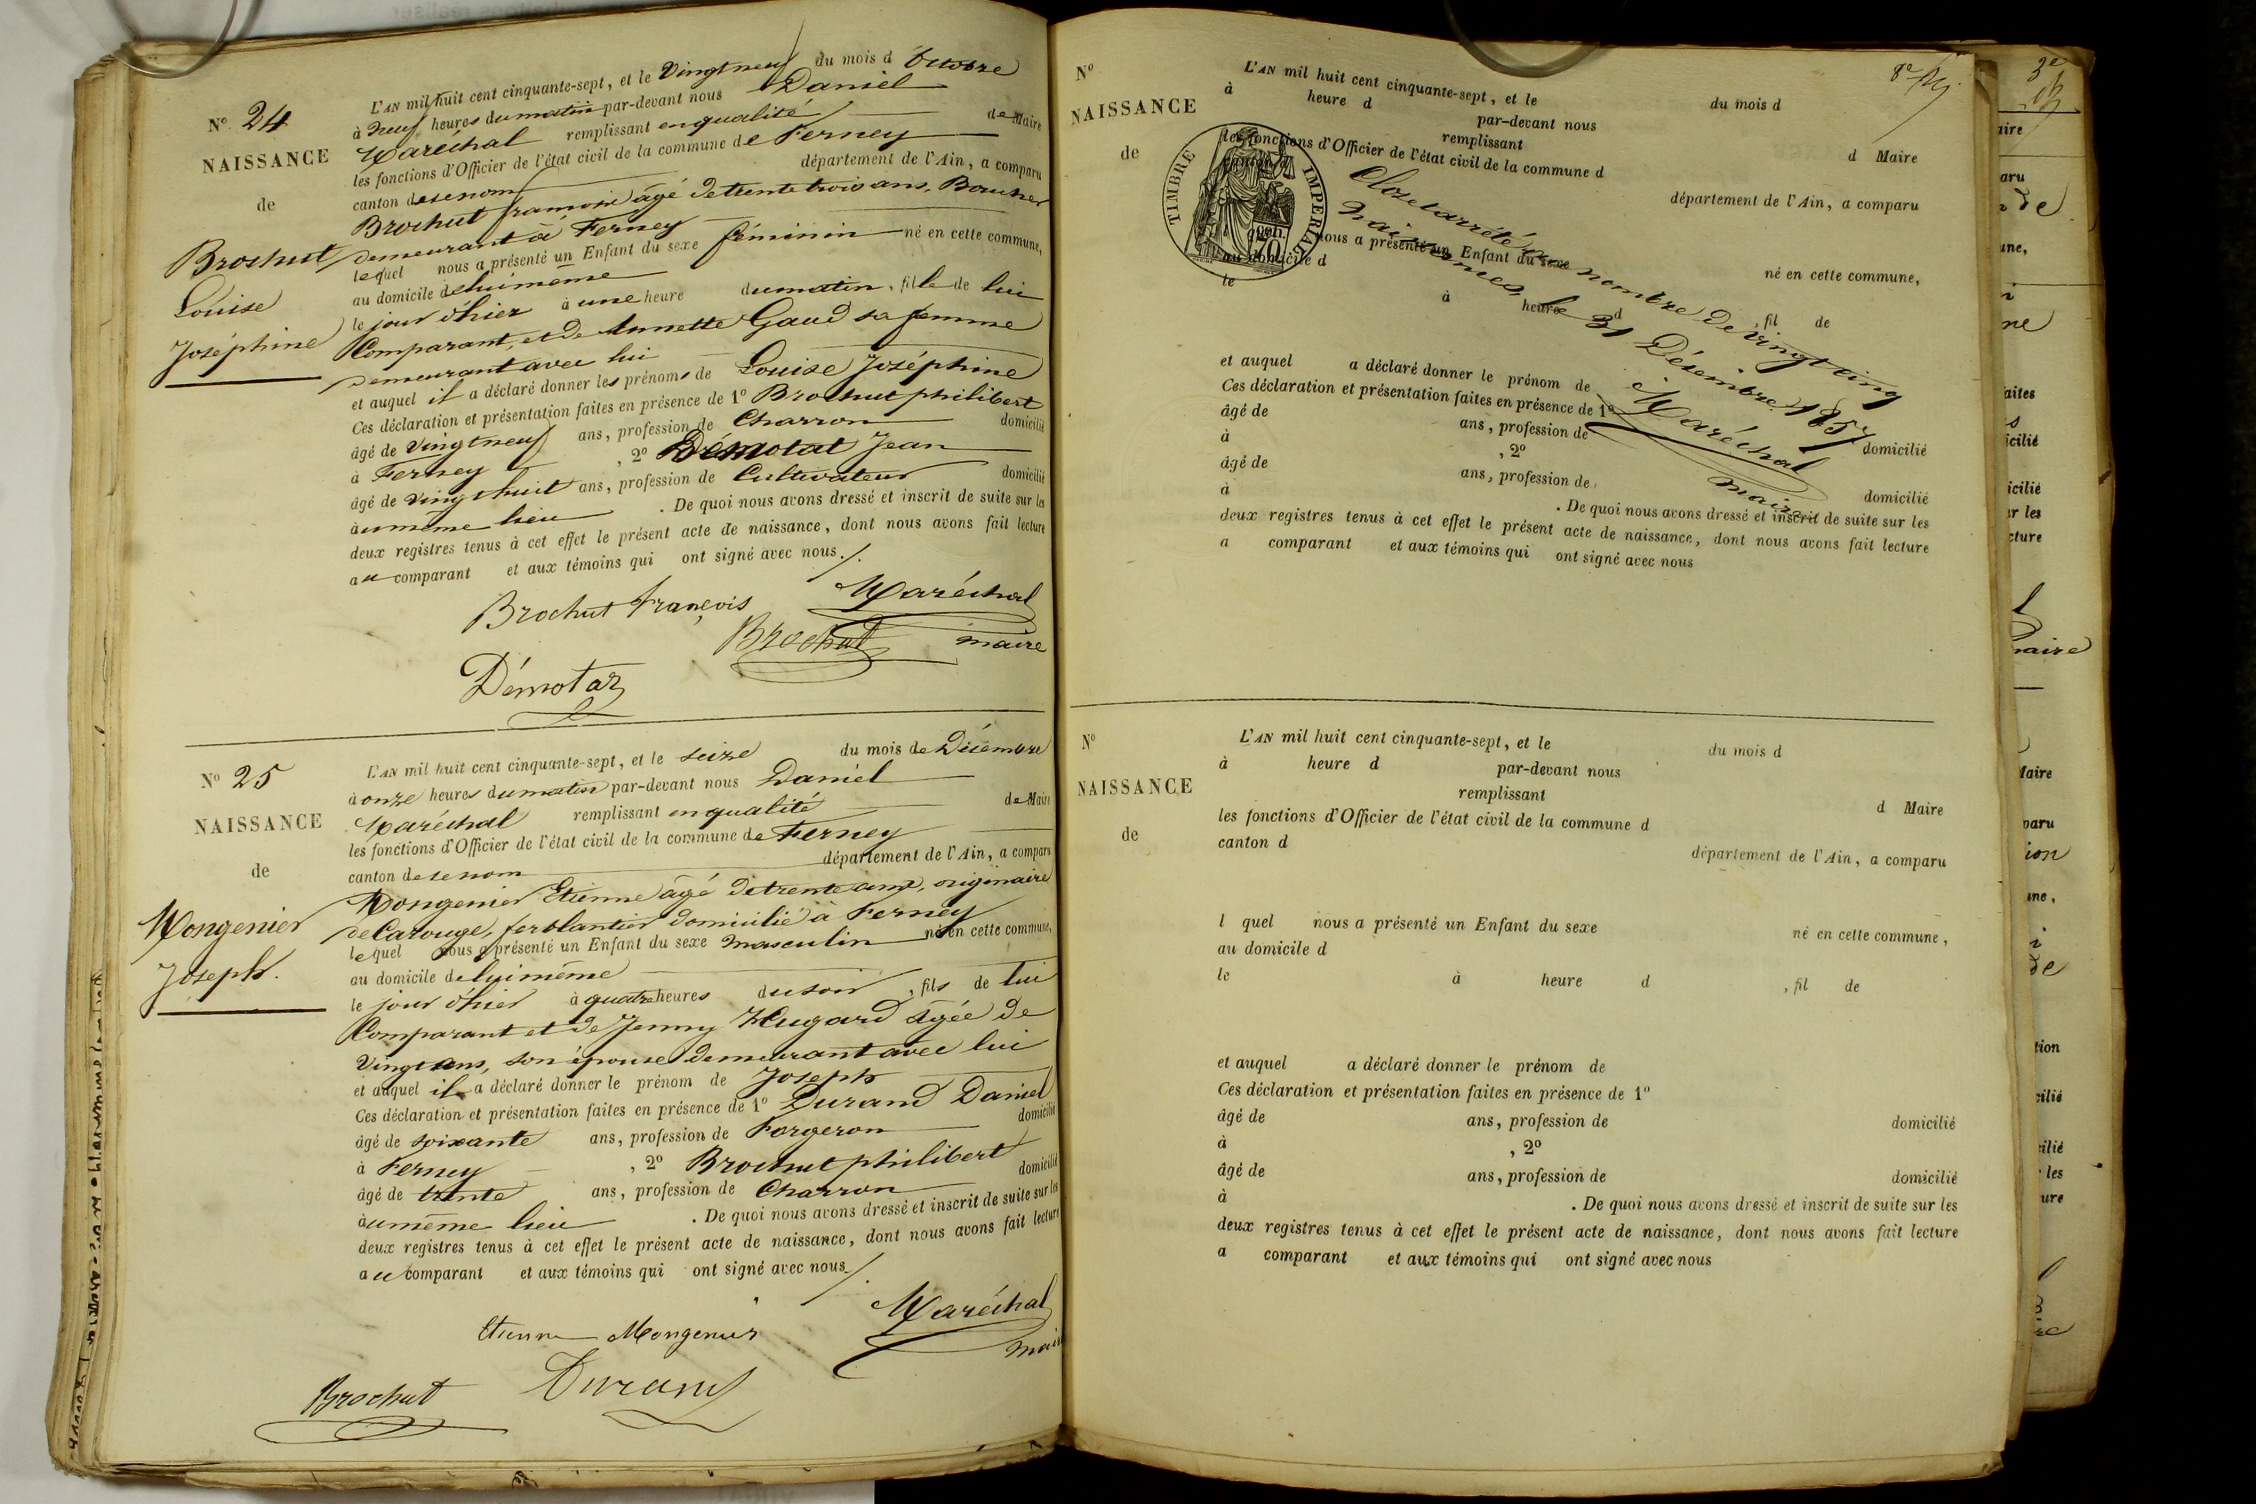 N° 24
NAISSANCE
de
Brochut
Louise
Joséphine
L'AN mil huit cent cinquante-sept, et le Vingt neuf du mois d'Octobre
à neuf heures du matin par-devant nous Daniel
Maréchal remplissant en qualité de Maire
les fonctions d'Officier de l'état civil de la commune de Ferney
canton de ce nom département de l'Ain, a comparu
Brochut françois âgé de trente trois ans, Boucher
demeurant à Ferney
lequel nous a présenté un Enfant du sexe féminin né en cette commune,
au domicile de lui même
le jour d'hier à une heure du matin, fille de lui
Comparant, et de Annette Gaud sa femme
demeurant avec lui
et auquel il a déclaré donner les prénoms de Louise Joséphine
Ces déclaration et présentation faites en présence de 1° Brochut philibert
âgé de vingt neuf ans, profession de Charron domicilié
à Ferney, 2° Démotat Jean
âgé de vingt huit ans, profession de Cultivateur domicilié
au même lieu. De quoi nous avons dressé et inscrit de suite sur les
deux registres tenus à cet effet le présent acte de naissance, dont nous avons fait lecture
au comparant et aux témoins qui ont signé avec nous./.
Brochut françois
Maréchal
Brochut
maire
Démotaz
N° 25
NAISSANCE
de
Mongenier
Joseph.
L'AN mil huit cent cinquante-sept, et le seize du mois de Décembre
à onze heures du matin par-devant nous Daniel
Maréchal remplissant en qualité de Maire
les fonctions d'Officier de l'état civil de la commune de Ferney
canton de ce nom département de l'Ain, a comparu
Mongenier Etienne âgé de trente ans, originaire
de Carouge, ferblantier domicilié à Ferney
lequel nous a présenté un Enfant du sexe masculin né en cette commune,
au domicile de lui même
le jour d'hier à quatre heures du soir, fils de lui
Comparant et de Jenny Hugard âgée de
vingt ans, son épouse demeurant avec lui
et auquel il a déclaré donner le prénom de Joseph
Ces déclaration et présentation faites en présence de 1° Durand Daniel
âgé de soixante ans, profession de Forgeron domicilié
à Ferney, 2° Brochut philibert
âgé de trente ans, profession de Charron domicilié
au même lieu. De quoi nous avons dressé et inscrit de suite sur les
deux registres tenus à cet effet le présent acte de naissance, dont nous avons fait lecture
au comparant et aux témoins qui ont signé avec nous./.
Maréchal
Etienne Mongenier
maire
Durand
Brochut
N°
NAISSANCE
de
L'AN mil huit cent cinquante-sept, et le du mois d
à heure d par-devant nous
remplissant d Maire
les fonctions d'Officier de l'état civil de la commune d
département de l'Ain, a comparu
TIMBRE IMPERIAL
Clos et arrêté au nombre de vingt cinq
naissances, le 31 Décembre 1857
Maréchal
maire
nous a présenté un Enfant du sexe né en cette commune,
au domicile d
le à heure d, fil de
et auquel a déclaré donner le prénom de
Ces déclaration et présentation faites en présence de 1°
âgé de ans, profession de domicilié
à, 2°
âgé de ans, profession de domicilié
à. De quoi nous avons dressé et inscrit de suite sur les
deux registres tenus à cet effet le présent acte de naissance, dont nous avons fait lecture
a comparant et aux témoins qui ont signé avec nous
N°
NAISSANCE
de
L'AN mil huit cent cinquante-sept, et le du mois d
à heure d par-devant nous
remplissant d Maire
les fonctions d'Officier de l'état civil de la commune d
canton d département de l'Ain, a comparu
l quel nous a présenté un Enfant du sexe né en cette commune,
au domicile d
le à heure d, fil de
et auquel a déclaré donner le prénom de
Ces déclaration et présentation faites en présence de 1°
âgé de ans, profession de domicilié
à, 2°
âgé de ans, profession de domicilié
à. De quoi nous avons dressé et inscrit de suite sur les
deux registres tenus à cet effet le présent acte de naissance, dont nous avons fait lecture
a comparant et aux témoins qui ont signé avec nous